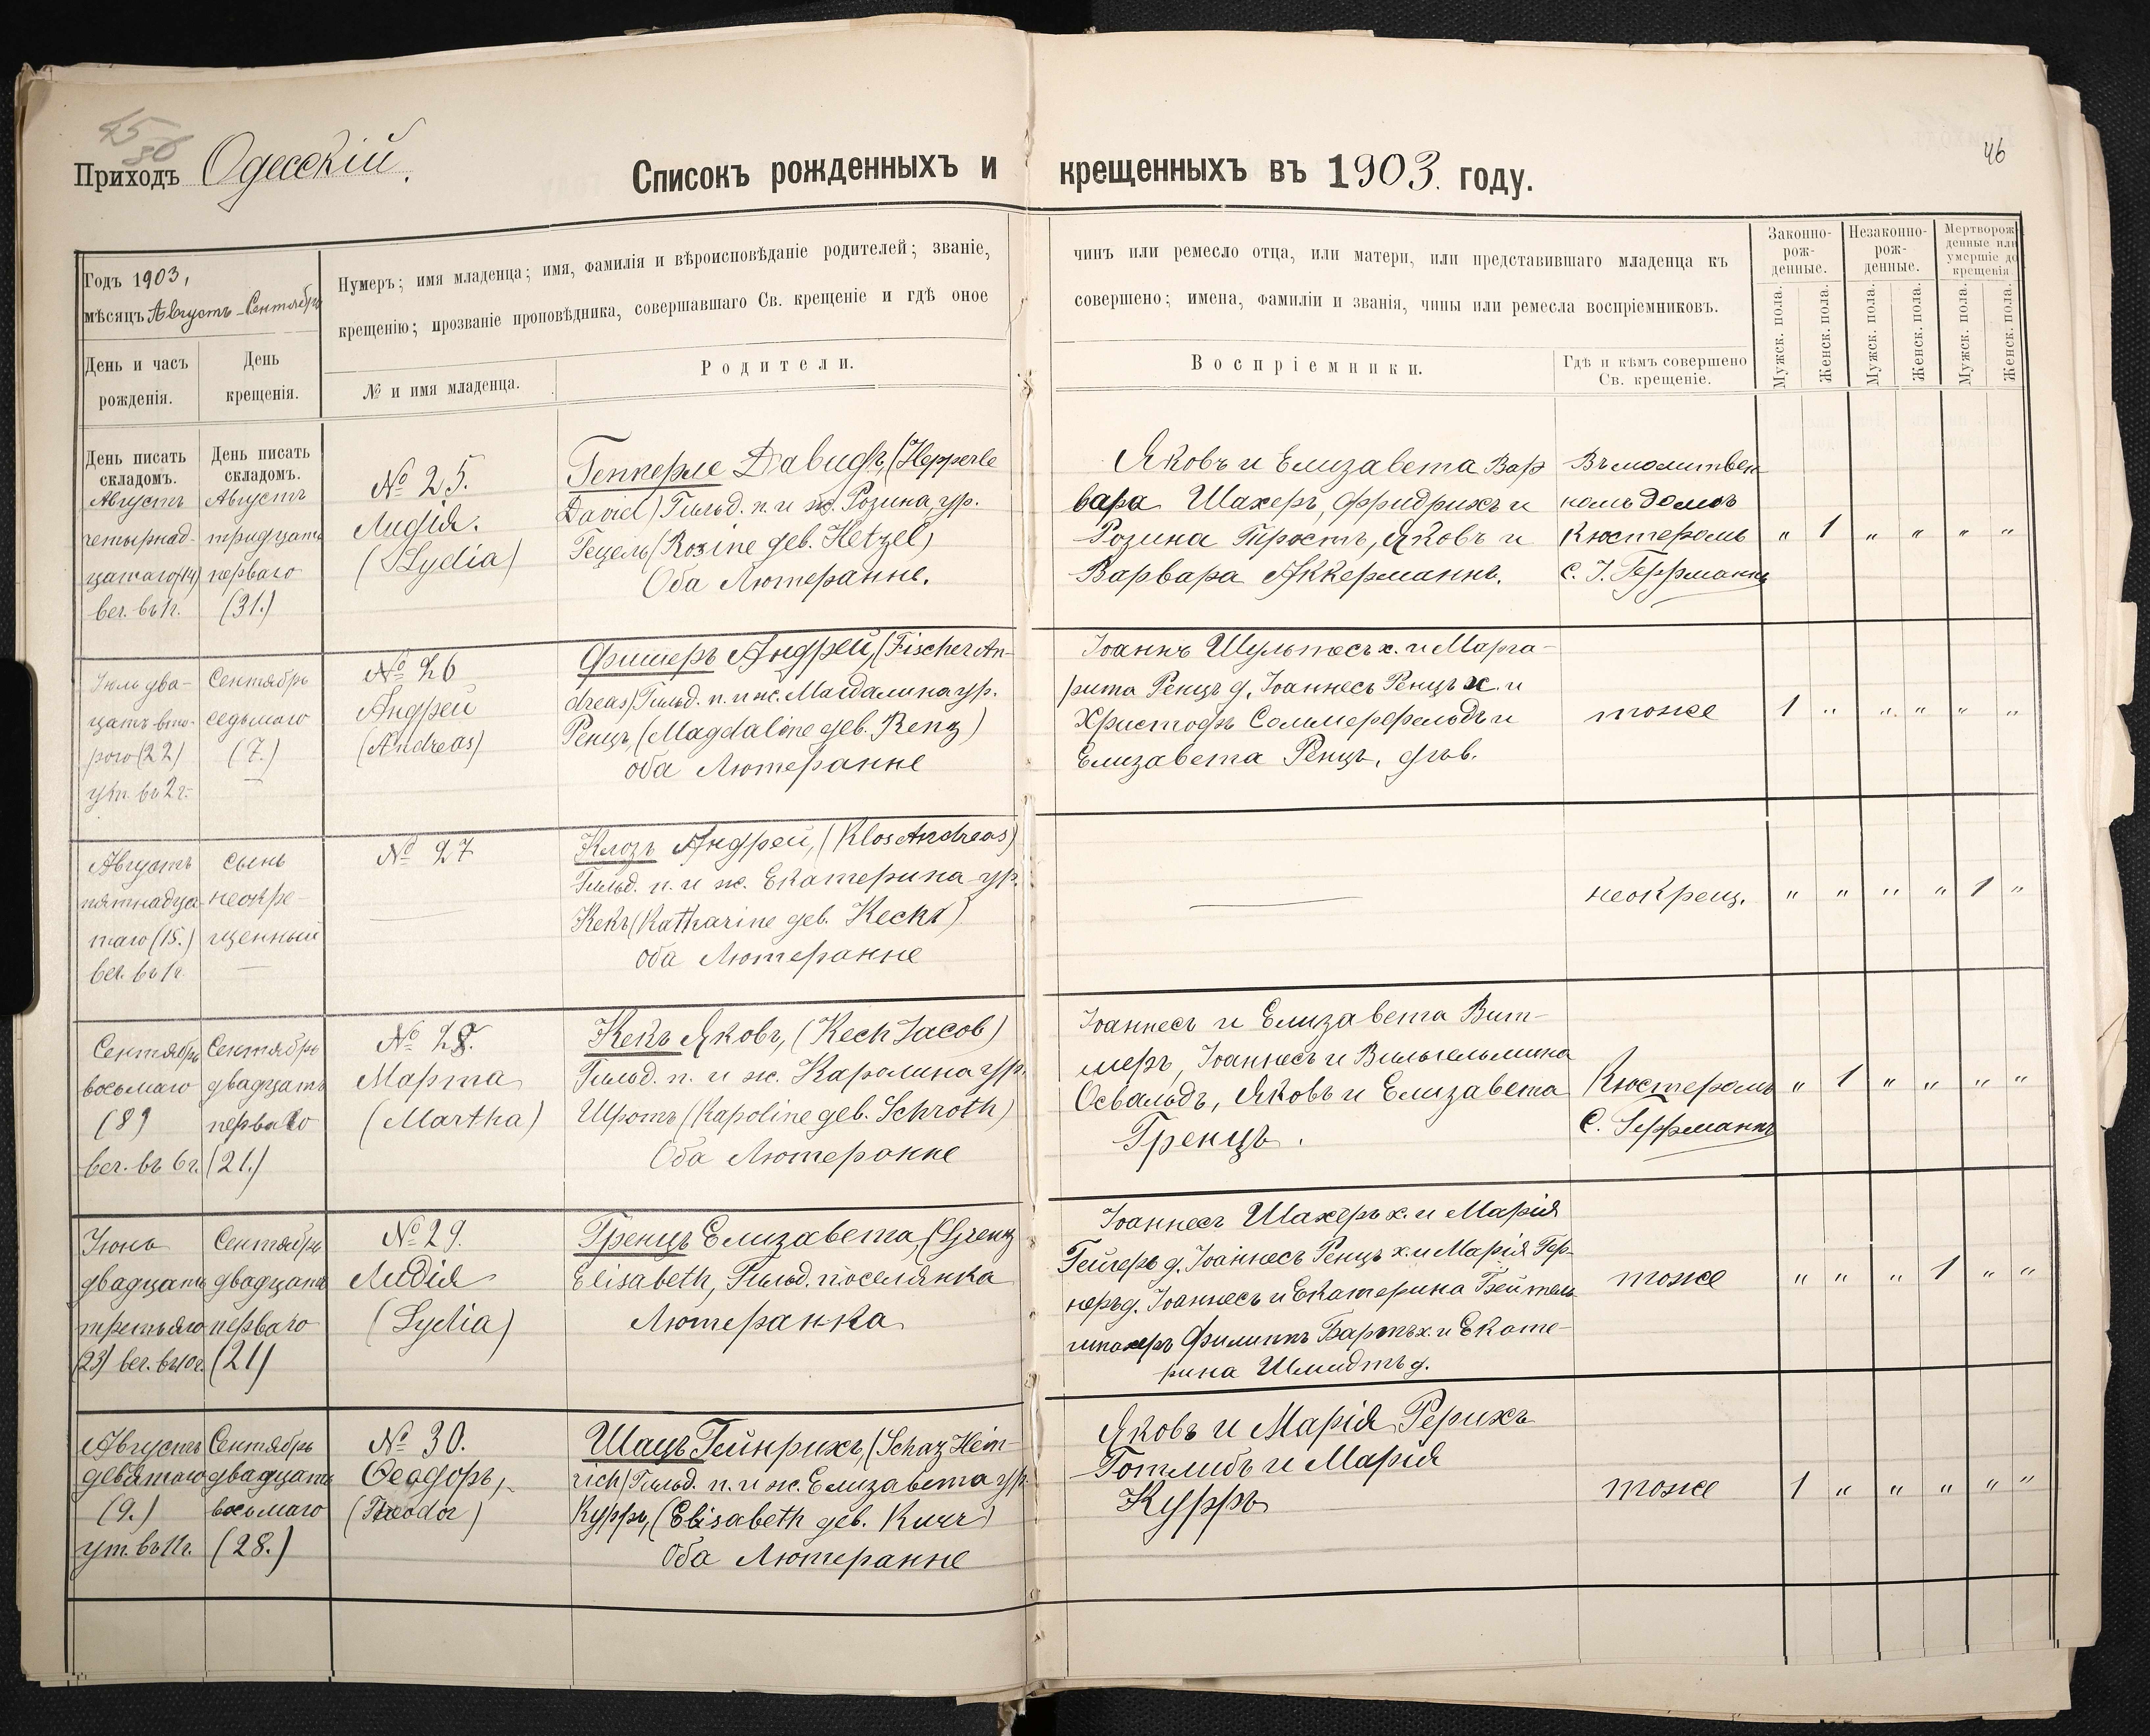 45
50
46
Приходъ Одесскій.
Списокъ рожденныхъ и крещенныхъ въ 1903. году.
Годъ 1903,
мѣсяцъ Августъ-Сентябрь
Нумеръ; имя младенца; имя, фамилія и вѣроисповѣданіе родителей; званіе,
крещенію; прозваніе проповѣдника, совершавшаго Св. крещеніе и гдѣ оное
чинъ или ремесло отца, или матери, или представившаго младенца къ
совершено; имена, фамиліи и званія, чины или ремесла воспріемниковъ.
Законно-
рож-
денные.
Незаконно-
рож-
денные.
Мертворож-
денные или
умершіе до
крещенія
День и часъ
рожденія.
День
крещенія.
№ и имя младенца.
Родители.
Воспріемники.
Гдѣ и кѣмъ совершено
Св. крещеніе.
Мужск. пола.
Женск. пола.
Мужск. пола.
Женск. пола.
Мужск. пола.
Женск. пола.
День писать
складомъ.
Августъ
четырнад-
цатаго (14)
веч. въ 1ч.
День писать
складомъ.
Августъ
тридцать
перваго
(31.)
№ 25.
Лидія.
(Lydia)
Гепперле Давидъ, (Hepperle
David) Гильд. п. и ж. Розина, ур.
Гецель (Rosine geb. Hetzel)
Оба Лютеранне.
Яковъ и Елизавета Вар
вара Шахеръ, Фридрихъ и
Розина Тростъ, Яковъ и
Варвара Аккерманнъ.
Въ молитвен
номъ домѣ
Кюстеромъ
С. І. Геррманнъ
" 1 " " " "
Іюль два-
цать вто-
рого (22)
ут. въ 2ч.
Сентябрь
седьмаго
(7.)
№ 26
Андрей
(Andreas)
Фишеръ Андрей, (Fischer An-
dreas) Гильд. п. и ж. Магдалина ур.
Ренцъ, (Magdaline geb. Renz)
оба Лютеранне
Іоаннъ Шультесъ х. и Марга-
рита Ренцъ д. Іоаннесъ Ренцъ х. и
Христофъ Соммерфельдъ и
Елизавета Ренцъ, дѣв.
тоже
1 " " " " "
Августъ
пятнадца-
таго (15.)
веч. въ 1ч.
сынъ
неокре-
щенный
№ 27
Клозъ Андрей, (Klos Andreas)
Гильд. п. и ж. Екатерина ур.
Кекъ (Katharine geb. Keck)
оба Лютеранне
неокрещ.
" " " " 1 "
Сентябрь
восьмаго
(8)
веч. въ 6ч.
Сентябрь
двадцать
перваго
(21.)
№ 28.
Марта
(Martha)
Кекъ Яковъ, (Kech Jacob)
Гильд. п. и ж. Каролина ур.
Шротъ (Karoline geb. Schroth)
Оба Лютеранне
Іоаннесъ и Елизавета Вит-
меръ, Іоаннесъ и Вильгельмина
Освальдъ, Яковъ и Елизавета
Гренцъ.
Кюстеромъ
С. Геррманнъ
" 1 " " " "
Іюнь
двадцать
третьяго
(23) веч. въ 10ч.
Сентябрь
двадцать
перваго
(21)
№ 29.
Лидія
(Lydia)
Гренцъ Елизавета, (Grenz
Elisabeth, Гильд. поселянка
Лютеранка
Іоаннесъ Шахеръ х. и Марія
Гейгеръ д. Іоаннесъ Ренцъ х. и Марія Гер-
неръ д. Іоаннесъ и Екатерина Бейтель-
шпахеръ Филиппъ Бартъ х. и Екате-
рина Шмидтъ д.
тоже
" " " 1 " "
Августъ
девятаго
(9.)
ут. въ 11ч.
Сентябрь
двадцать
восьмаго
(28.)
№ 30.
Ѳеодоръ,
(Theodor)
Шацъ Гейнрихъ, (Schaz Hein-
rich) Гильд. п. и ж. Елизавета ур.
Курръ, (Elisabeth geb. Kurr)
Оба Лютеранне
Яковъ и Марія Рерихъ
Готлибъ и Марія
Курръ
тоже
1 " " " " "